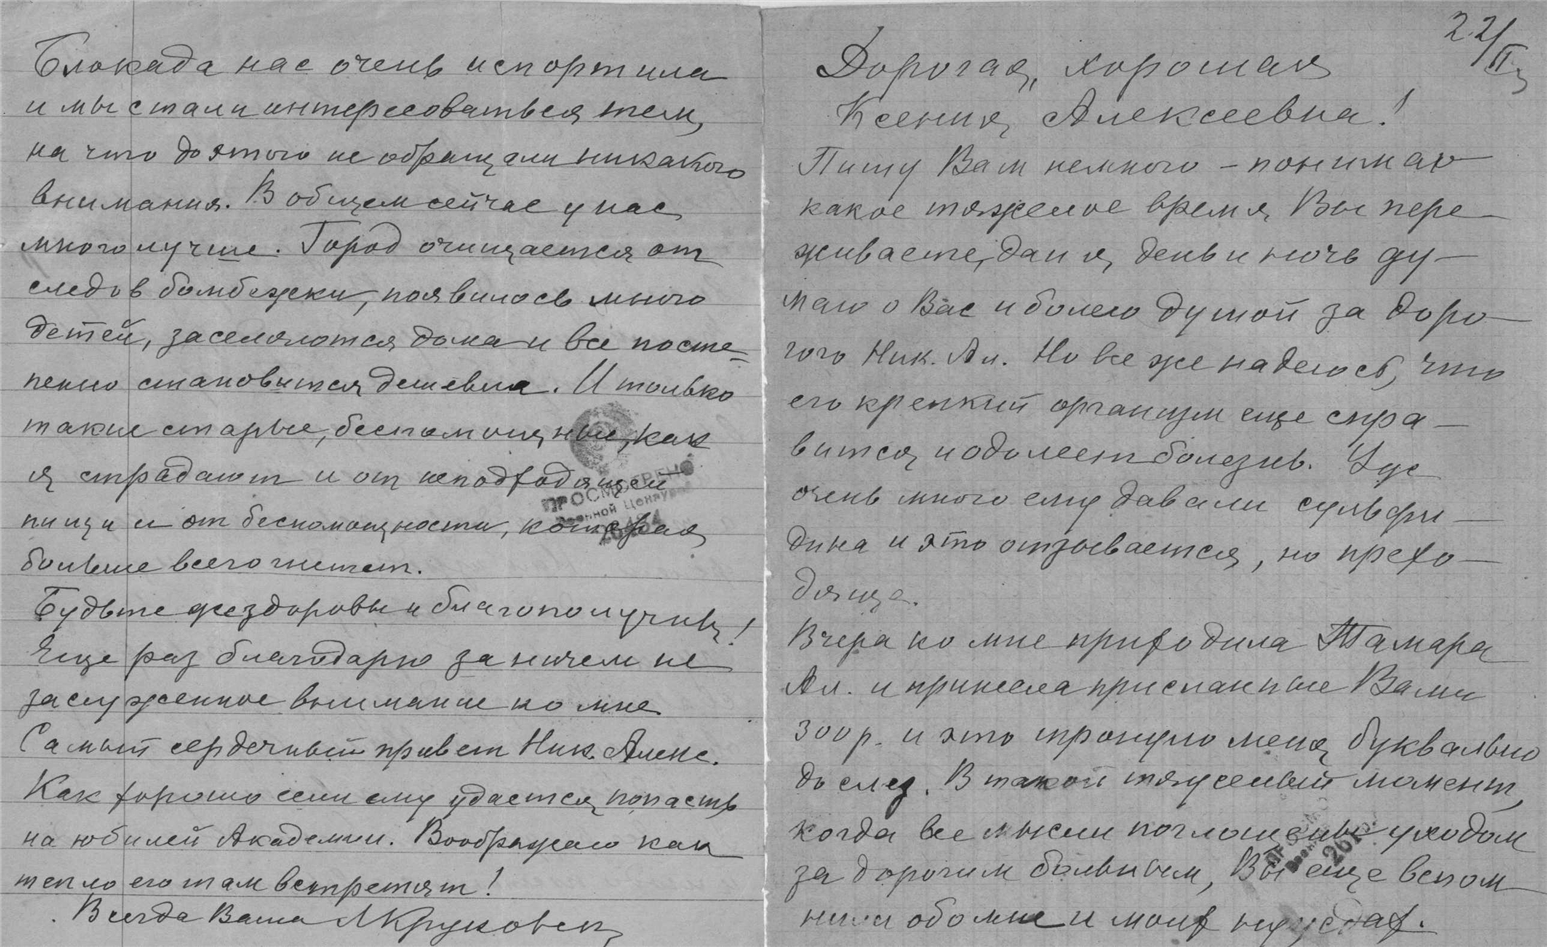 22/II
Дорогая, хорошая
Ксения Алексеевна!
Пишу Вам немного – понимаю
какое тяжелое время Вы пере–
живаете, да и я день и ночь ду–
маю о Вас и болею душой за доро–
гого Ник. Ал. Но все же надеюсь, что
его крепкий организм еще спра–
вится и одолеет болезнь. Уж
очень много ему давали сульфи–
дина и это отзывается, но прехо–
дяще.
Вчера ко мне приходила Тамара
Ал. и принесла присланные Вами
300 р. и это тронуло меня буквально
до слез. В такой тяжелый момент,
когда все мысли поглощены уходом
за дорогим больным, Вы еще вспом–
нили обо мне и моих нуждах.
Блокада нас очень испортила
и мы стали интересоваться тем,
на что до этого не обращали никакого
внимания. В общем сейчас у нас
много лучше. Город очищается от
следов бомбежки, появилось много
детей, заселяются дома и все посте=
пенно становится дешевле. И только
такие старые, беспомощные, как
я страдают и от неподходящей
пищи и от беспомощности, которая
больше всего гнетет.
Будьте же здоровы и благополучны!
Еще раз благодарю за ничем не
заслуженное внимание ко мне
Самый сердечный привет Ник. Алекс.
Как хорошо если ему удастся попасть
на юбилей Академии. Воображаю как
тепло его там встретят!
Всегда Ваша
ПРОСМОТРЕНО
Военной Цензурой